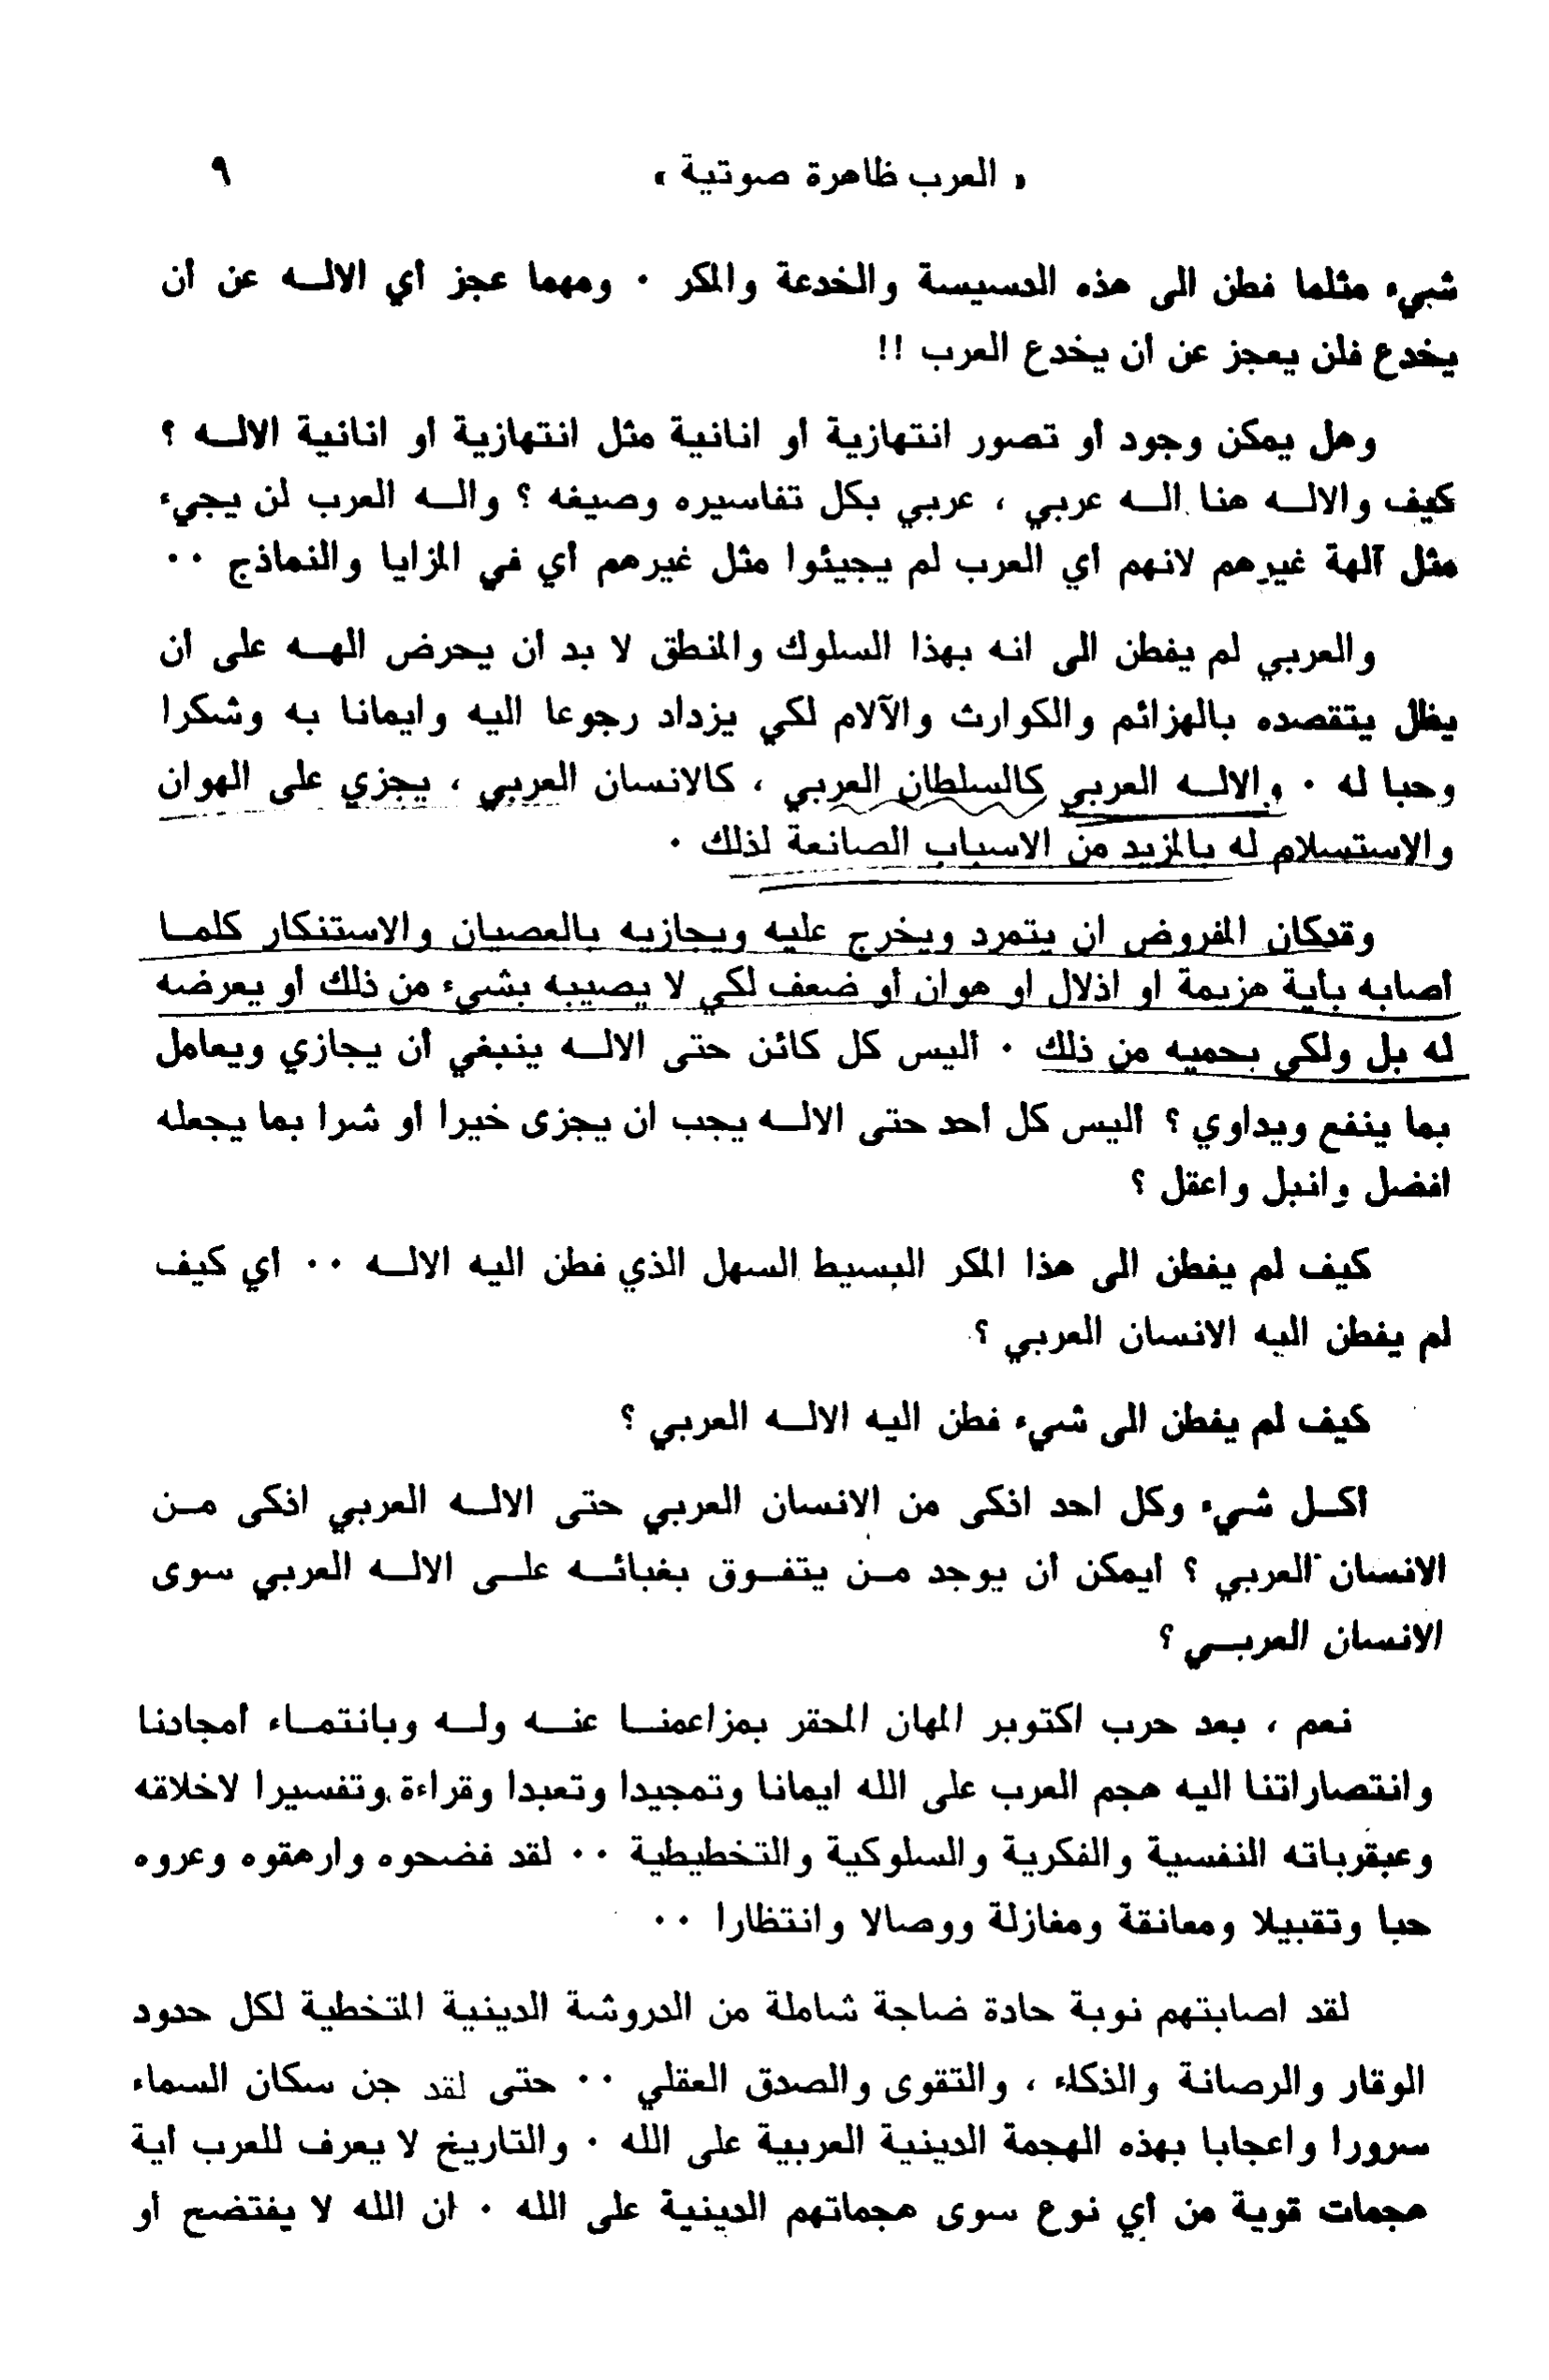 « العرب ظاهرة صوتية » ٩
شيء مثلما فطن الى هذه الدسيسة والخدعة والمكر . ومهما عجز أي الالـه عن أن
يخدع فلن يعجز عن أن يخدع العرب !!
وهل يمكن وجود أو تصور انتهازية أو انانية مثل انتهازية او انانية الالـه ؟
كيف والالـه هنا الـه عربي ، عربي بكل تفاسيره وصيغه ؟ والـه العرب لن يجيء
مثل آلهة غيرهم لانهم اي العرب لم يجيئوا مثل غيرهم أي في المزايا والنماذج ..
والعربي لم يفطن الى انه بهذا السلوك والمنطق لا بد ان يحرض الهـه على ان
يظل يتقصده بالهزائم والكوارث والآلام لكي يزداد رجوعا اليه وايمانا به وشكرا
وحبا له . والالـه العربي كالسلطان العربي ، كالانسان العربي ، يجزي على الهوان
والاستسلام له بالمزيد من الاسباب الصانعة لذلك .
وقدكان المفروض ان يتمرد ويخرج عليه ويجازيه بالعصيان والاستنكار كلمـا
أصابه بأية هزيمة او اذلال او هوان أو ضعف لكي لا يصيبه بشيء من ذلك أو يعرضه
له بل ولكي يحميه من ذلك . أليس كل كائن حتى الالـه ينبغي أن يجازي ويعامل
بما ينفع ويداوي ؟ أليس كل احد حتى الالـه يجب ان يجزى خيرا او شرا بما يجعله
افضل وانبل واعقل ؟
كيف لم يفطن الى هذا المكر البسيط السهل الذي فطن اليه الالـه .. اي كيف
لم يفطن اليه الانسان العربي ؟
كيف لم يفطن الى شيء فطن اليه الالـه العربي ؟
أكـل شيء وكل احد اذكى من الانسان العربي حتى الالـه العربي اذكى مـن
الانسان العربي ؟ ايمكن أن يوجد مـن يتفـوق بغبائـه علـى الالـه العربي سوى
الانسان العربـي ؟
نعم ، بعد حرب اكتوبر المهان المحقر بمزاعمنـا عنـه ولـه وبانتمـاء أمجادنا
وانتصاراتنا اليه هجم العرب على الله ايمانا وتمجيدا وتعبدا وقراءة وتفسيرا لاخلاقه
وعبقرياته النفسية والفكرية والسلوكية والتخطيطية .. لقد فضحوه وارهقوه وعروه
حبا وتقبيلا ومعانقة ومغازلة ووصالا وانتظارا ..
لقد اصابتهم نوبة حادة ضاجة شاملة من الدروشة الدينية المتخطية لكل حدود
الوقار والرصانة والذكاء ، والتقوى والصدق العقلي .. حتى لقد جن سكان السماء
سرورا واعجابا بهذه الهجمة الدينية العربية على الله . والتاريخ لا يعرف للعرب اية
هجمات قوية من أي نوع سوى هجماتهم الدينية على الله . ان الله لا يفتضح أو